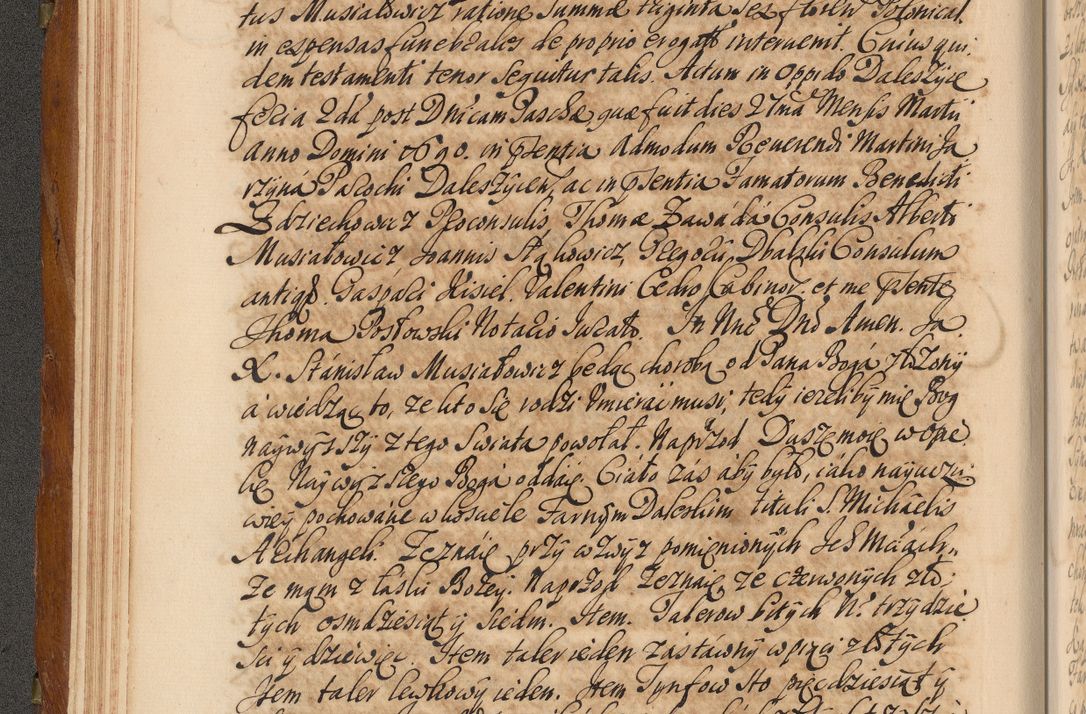 tus Musiałowicz ratione Summæ triginta sex floren Polonical.
in expensas funebrales de proprio erogatt interuenit. Cuius qui
dem testamenti tenor sequitur talis. Actum in Oppido Daleszyce
feria 2da post Dnicam Paschæ, quæ fuit dies 27ma Mensis Martii
Anno Domini 1690. in Pntia Admodum Reuerendi Martini Ja
rzyna Parochi Daleszycen, ac in Pntia Famatorum Benedicti
Zdziechowicz Proconsulis, Thomæ Zawada Consulis Alberti
Musiałowicz Joannis Stachowicz, Gregorii Consulum
antiq. Gaspari Kisiel. Valentini Cedro et me Pnte
Thoma Posłowski Notario Jurato. In Nne Dni Amen. Ja
X. Stanisław Musiałowicz będąc chorobą od Pana Boga złożony
a wiedząc to, ze kto się rodzi Vmierać musi, tedy ieżeliby mię Bog
naywyższy z tego Swiata powołał. Naprzod Duszę moię w opie
kę Naywyższego Boga oddaię. Ciało zas aby było, iako nayucżci
wiey pochowane w kosciele Farnym Daleskim tituli S. Michaelis
Archangeli. Zeznaię przy wzwyz pomienionych Ich Mciach,,
ze mąm z łaski Bożey. Naprzod Zeznaię ze czerwonych zło
tych osmdziesiąt y siedm. Item. Talerow bitych No trzydzie
sci y dziewięć. Item taler ieden zastawny w pięci złotych
Item taler lewkowy ieden. Item Tynfow sto pięcdziesiąt y